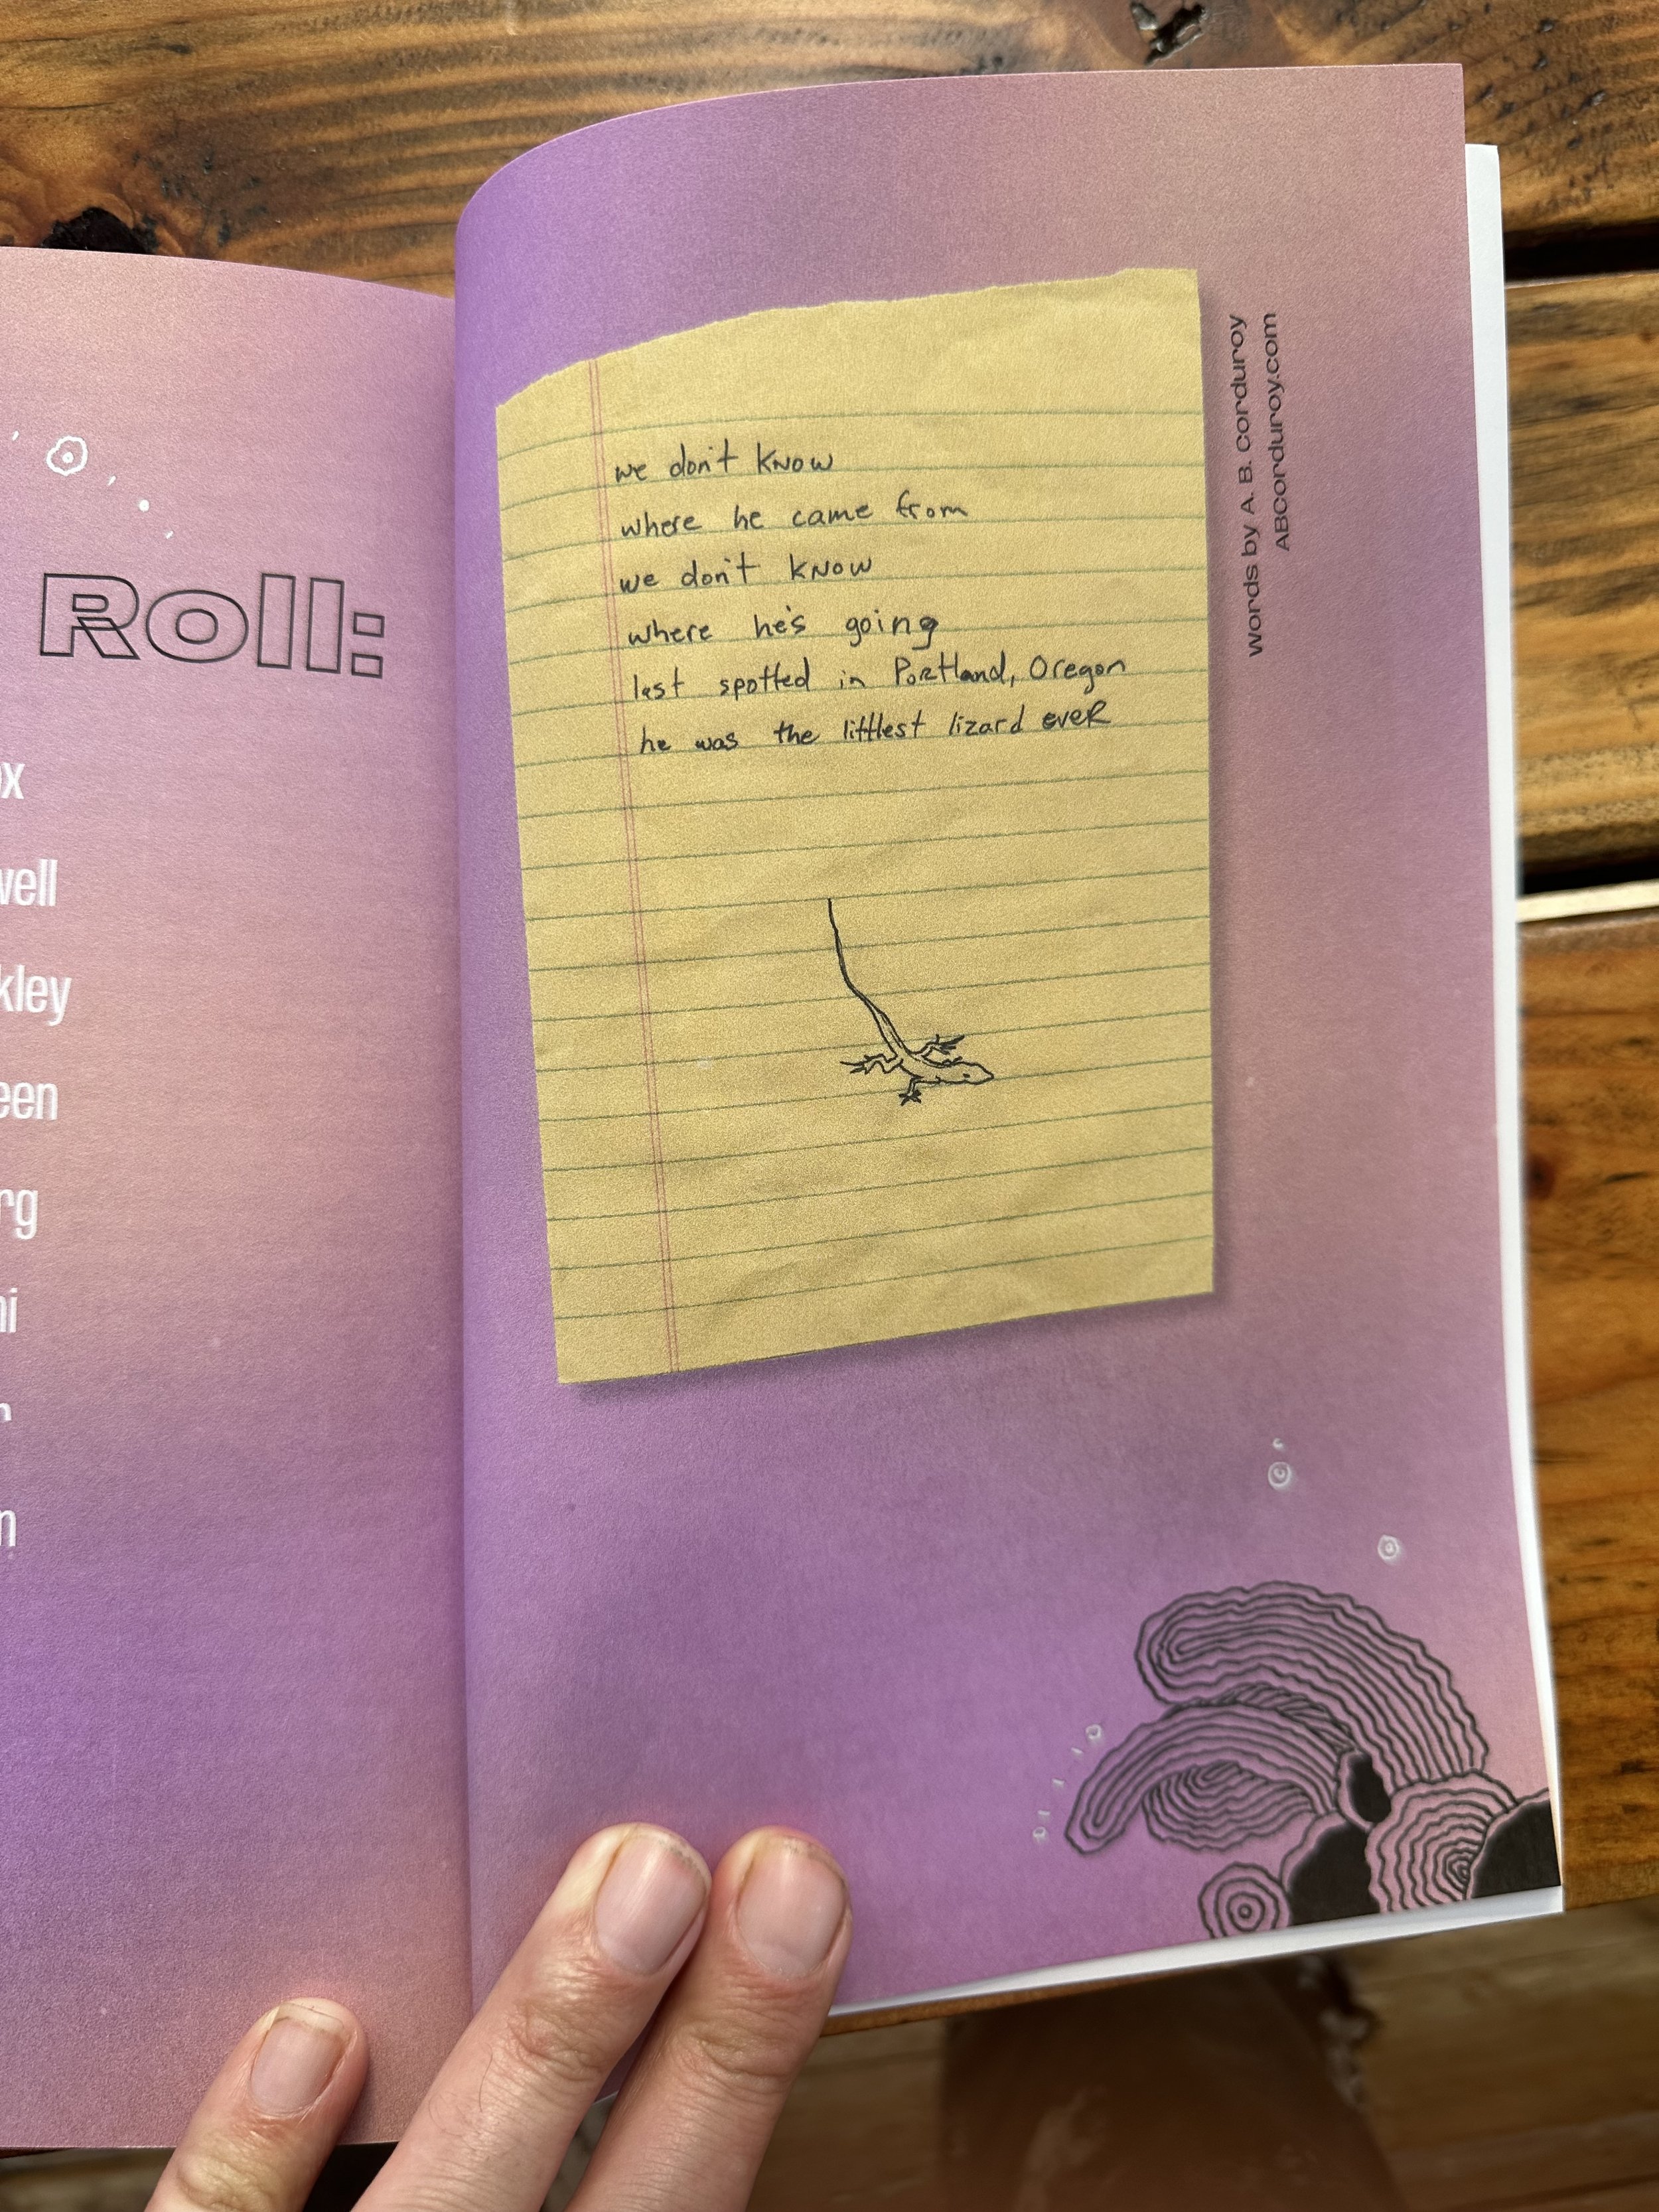 Roll:
we don't know
where he came from
we don't know
where he's going
last spotted in Portland, Oregon
he was the littlest lizard ever
words by A. B. Corduroy
ABCorduroy.com